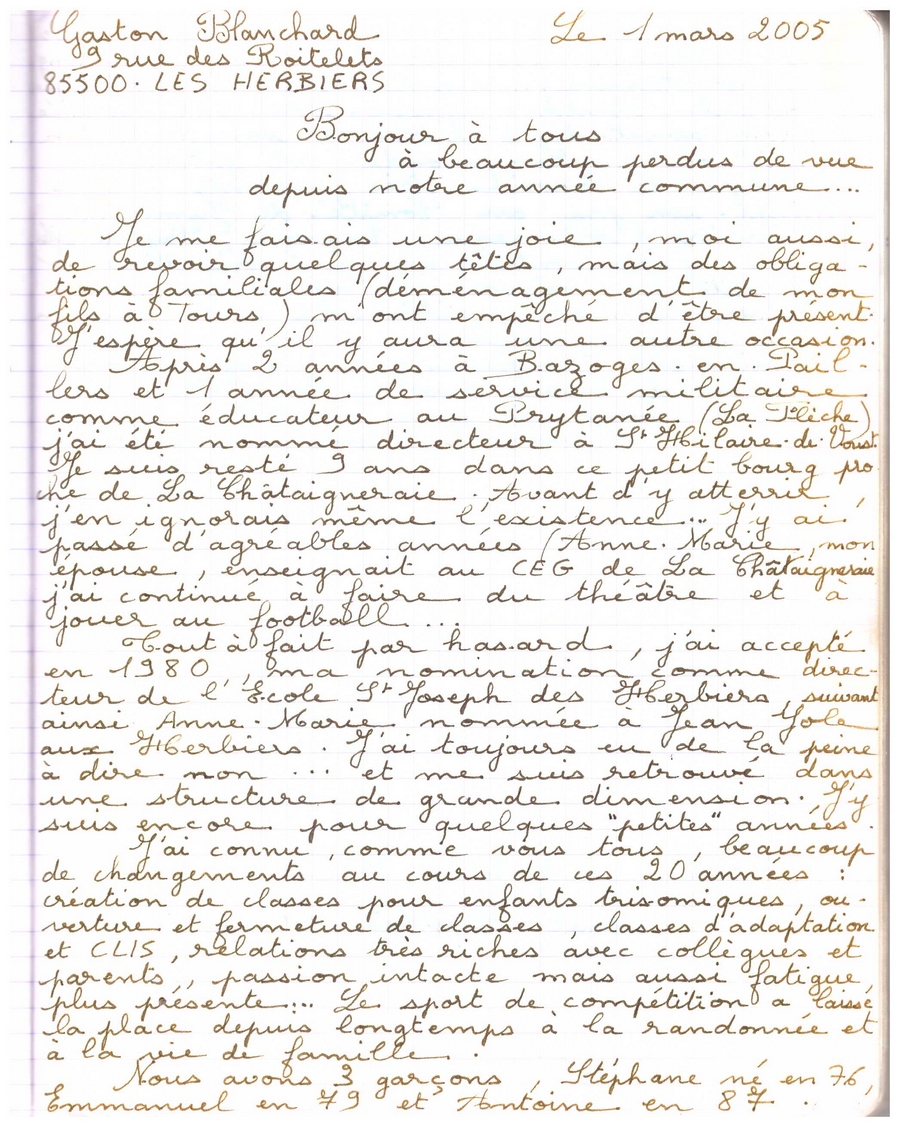 Gaston Blanchard Le 1 mars 2005
9 rue des Roitelets
85500. LES HERBIERS
Bonjour à tous
à beaucoup perdus de vue
depuis notre année commune...
Je me faisais une joie, moi aussi,
de revoir quelques têtes, mais des obliga-
tions familiales (déménagement de mon
fils à Tours) m'ont empêché d'être présent.
J'espère qu'il y aura une autre occasion.
Après 2 années à Bazoges. en. Pail-
lers et 1 année de service militaire
comme éducateur au Prytanée (La Flèche)
j'ai été nommé directeur à St Hilaire. de. Voust.
Je suis resté 9 ans dans ce petit bourg pro-
che de La Châtaigneraie. Avant d'y atterrir,
j'en ignorais même l'existence... J'y ai
passé d'agréables années (Anne. Marie, mon
épouse, enseignait au CEG de La Châtaigneraie
j'ai continué à faire du théâtre et à
jouer au football....
Tout à fait par hasard, j'ai accepté
en 1980, ma nomination comme direc-
teur de l'École St Joseph des Herbiers, suivant
ainsi Anne. Marie nommée à Jean Yole
aux Herbiers. J'ai toujours eu de la peine
à dire non ... et me suis retrouvé dans
une structure de grande dimension. J'y
suis encore pour quelques "petites" années.
J'ai connu, comme vous tous, beaucoup
de changements au cours de ces 20 années :
création de classes pour enfants trisomiques, ou-
verture et fermeture de classes, classes d'adaptation
et CLIS, relations très riches avec collègues et
parents,, passion intacte mais aussi fatigue
plus présente... Le sport de compétition a laissé
la place depuis longtemps à la randonnée et
à la vie de famille.
Nous avons 3 garçons, Stéphane né en 76,
Emmanuel en 79 et Antoine en 87.